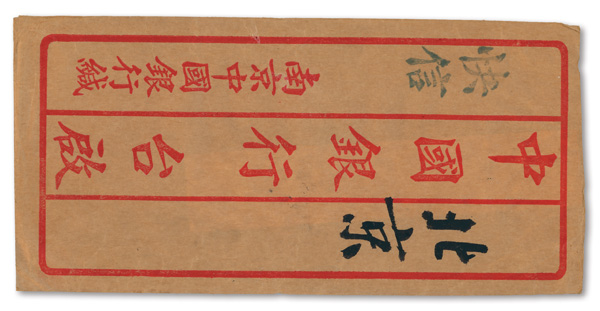 北京
中國銀行台啟
快信
南京中國銀行緘